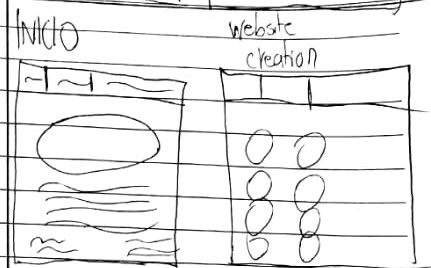 INICIO
Website
creation